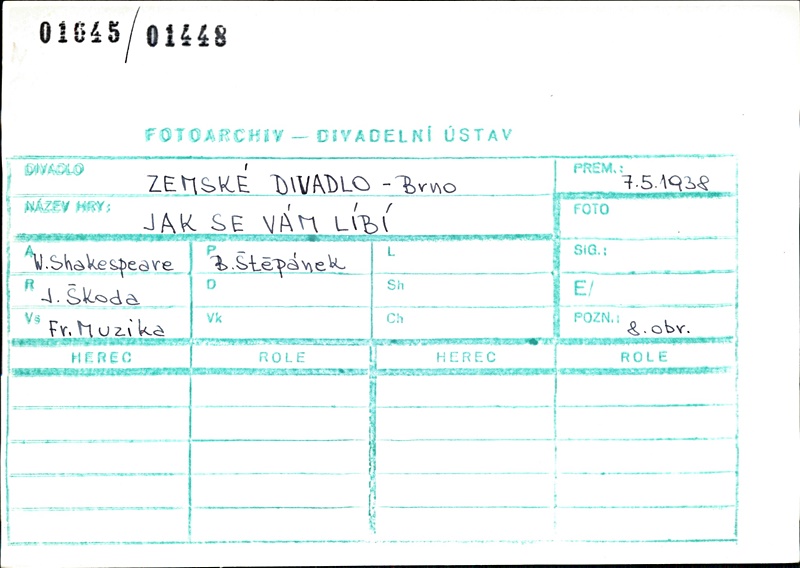 01645/01448
FOTOARCHIV — DIVADELNÍ ÚSTAV
DIVADLO ZEMSKÉ DIVADLO - Brno PREM.: 7.5.1938
NÁZEV HRY: JAK SE VÁM LÍBÍ FOTO
A W.Shakespeare P B.Štěpánek L SIG.:
R J. Škoda D Sh E/
Vs Fr. Muzika Vk Ch POZN.: 8. obr.
HEREC ROLE HEREC ROLE